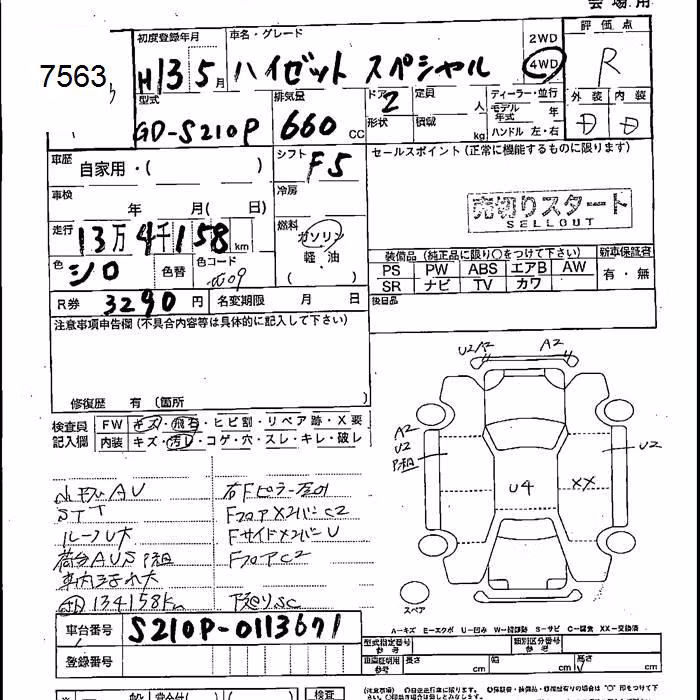 会場用
7563
初度登録年月 車名・グレード 2WD 評価点
H13 5月 ハイゼット スペシャル 4WD R
型式 排気量 ドア 2 定員 人 ディーラー・並行 外装 内装
GD-S210P 660 CC 形状 積載 kg モデル年式 年 D D
ハンドル 左・右
車歴 自家用・( ) シフト F5 セールスポイント(正常に機能するものに限ります)
車検 年 月( 日) 冷房
売切りスタート
SELLOUT
走行 13万4千158km 燃料 ガソリン
軽・油
( )
装備品(純正品に限り○をつけて下さい) 新車保証書
色 シロ 色替 色コード W09
PS PW ABS エアB AW 有・無
SR ナビ TV カワ
R券 3290円 名変期限 月 日 後日品
注意事項申告欄(不具合内容等は具体的に記入して下さい)
修復歴 有(箇所 )
U2 A2 A2
A2
U2
U2
U4 XX
スペア
検査員記入欄 FW キズ・飛石・ヒビ割・リペア跡・X要
内装 キズ・汚レ・コゲ・穴・スレ・キレ・破レ
STT FフロアXメンバーC2
ルーフU大 FサイドXメンバーU
荷台AUS FフロアC2
134158km 下廻りSC
車台番号 S210P-0113671
登録番号
A-キズ E-エクボ U-凹み S-サビ C-腐食 XX-交換済
型式指定番号 参考 類別区分番号 参考
車庫証明用 参考 長さ cm 幅 cm 高さ cm
検査